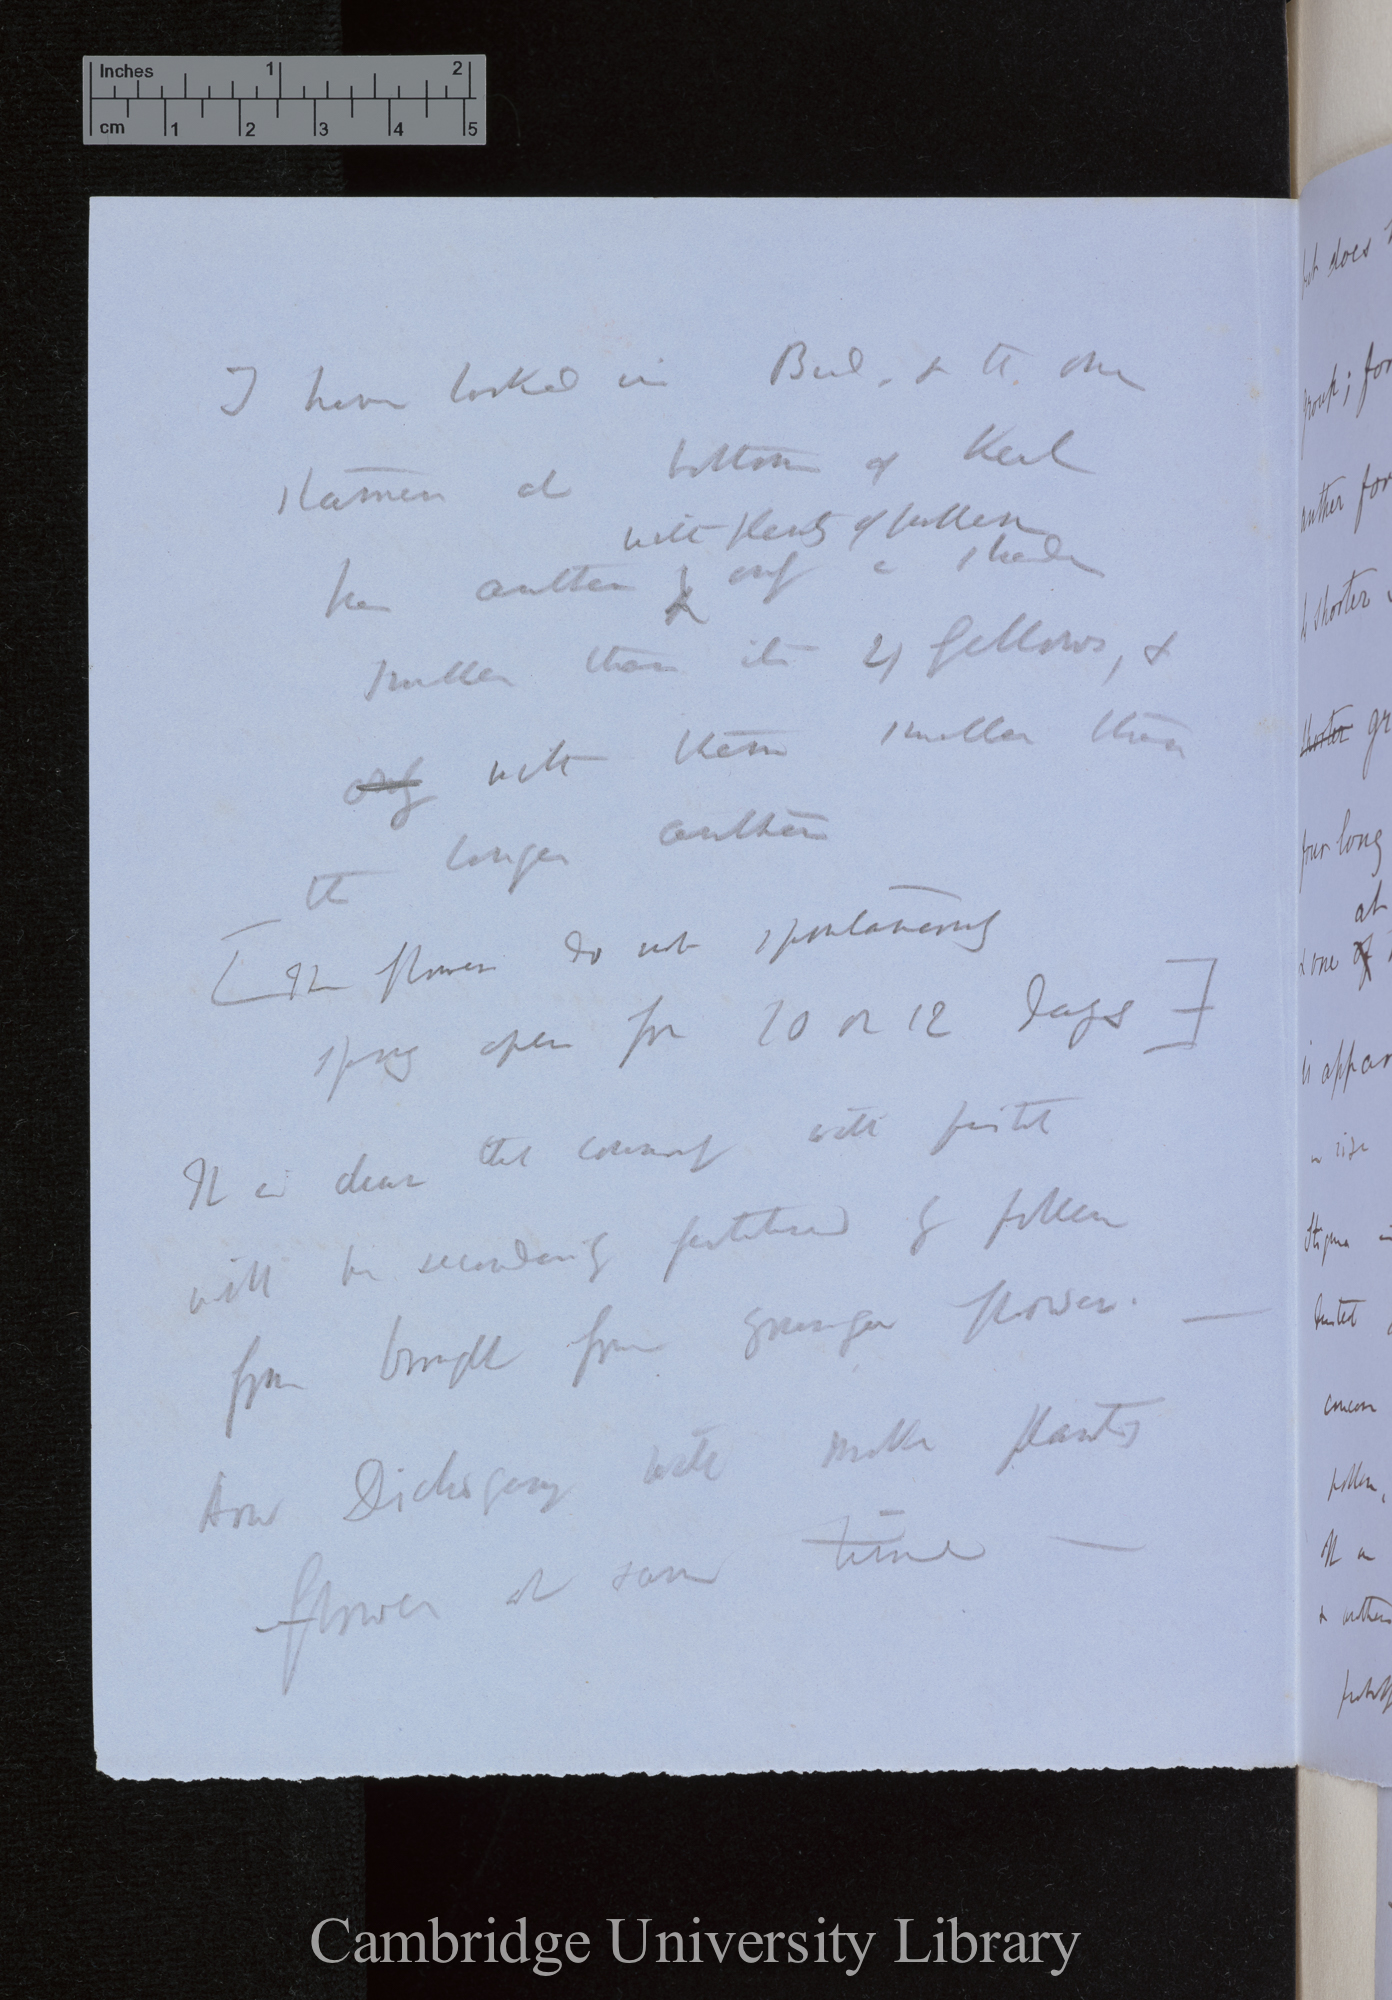 Inches 1 2
cm 1 2 3 4 5
I have looked in Bud, & the one
stamen at bottom of Keel
with plenty of pollen
has anther & only a shade
smaller than its 4 fellows, &
only with them smaller than
the longer anthers
[The flowers do not spontaneously
spring open for 10 or 12 days]
It is clear that with pistil
will be secondarily fertilised by pollen
from brought from younger flowers. —
How Dichogamy with male plants
flower at same time —
Cambridge University Library
but does
group; for
anther for
& shorter
shorter gr
four long
at
& one of
is appar
Stigma in
pollen,
It is
& anthers